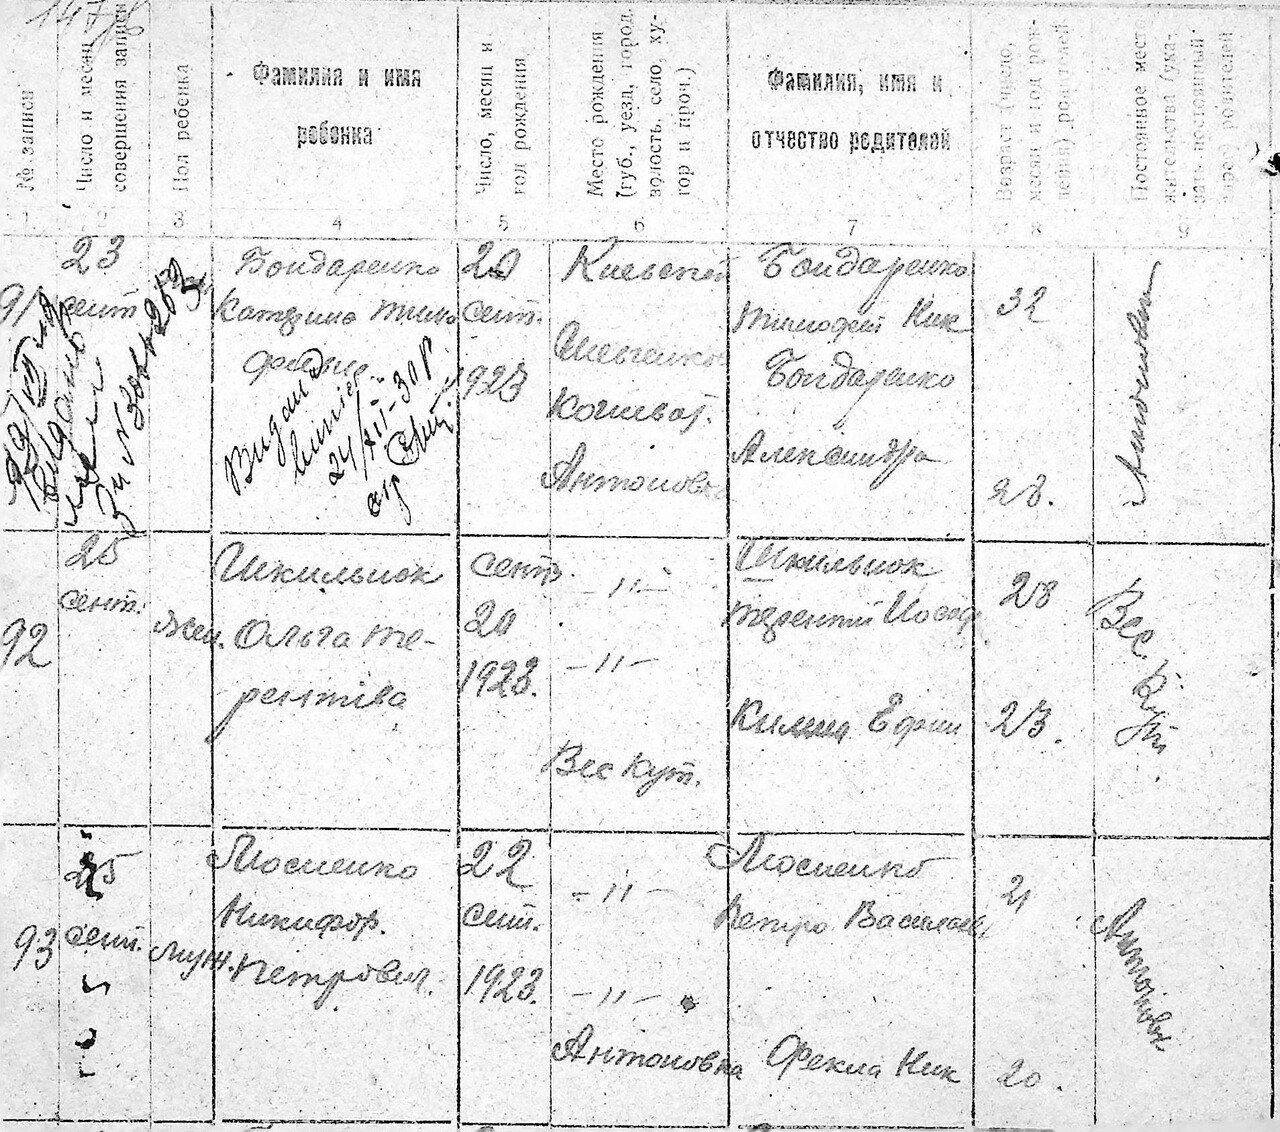 № записи
Число и месяц
совершения записи
Пол ребенка
Фамилия и имя
ребенка
Число, месяц и
год рождения
Место рождения
(губ., уезд, город,
волость, село, ху-
тор и проч.)
Фамилия, имя и
отчество родителей
Возраст (число,
месяц и год рож-
дения) родителей
Постоянное мест
жительства (ука-
зать постоянный
адрес) родителей
1 2 3 4 5 6 7 8 9
91
23
сент
Бондаренко
Катерина Тимо
феевна
20
сент.
1923
Киевской
Антоновка
Бондаренко
Тимофей Ник
Бондаренко
Александра
32
28.
Видана
24/VII-30 р
92
25
сент.
Жен.
Шкильнюк
Ольга Те-
рентіва
сент
20
1923.
-"-
-"-
Вес Кут.
Шкильнюк
Терентий Иосиф
Килина Ефим
28
23.
Вес. Кут.
93
25
сент.
Муж.
Мосиенко
Никифор.
Петрович.
22
сент.
1923.
-"-
-"-
Антоновка
Мосиенко
Петро Василов
Фекла Ник
21
20.
Антоновк